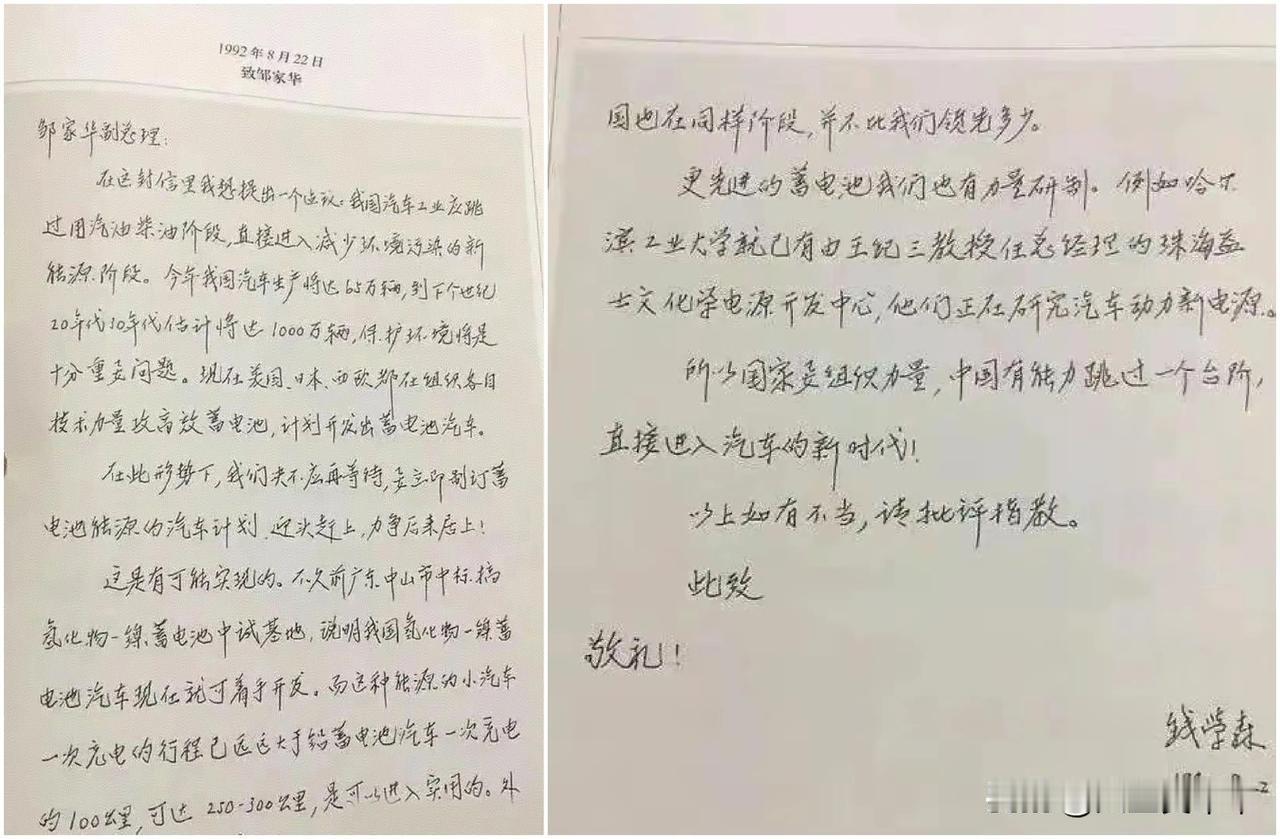 1992年8月22日
致邹家华
邹家华副总理：
在这封信里我想提出一个建议：我国汽车工业应跳
过用汽油柴油阶段，直接进入减少环境污染的新
能源阶段。今年我国汽车生产将达65万辆，到下个世纪
20年代30年代估计将达1000万辆，保护环境将是
十分重要问题。现在美国、日本、西欧都在组织各自
技术力量攻高效蓄电池，计划开发出蓄电池汽车。
在此形势下，我们决不应再等待，要立即制订蓄
电池能源的汽车计划，迎头赶上，力争后来居上！
这是有可能实现的。不久前广东中山市中标搞
氢化物—镍蓄电池中试基地，说明我国氢化物—镍蓄
电池汽车现在就可着手开发。而这种能源的小汽车
一次充电的行程已远远大于铅蓄电池汽车一次充电
的100公里，可达250-300公里，是可以进入实用的。外
国也在同样阶段，并不比我们领先多少。
更先进的蓄电池我们也有力量研制。例如哈尔
滨工业大学就已有由王纪三教授任总经理的珠海益
士文化学电源开发中心，他们正在研究汽车动力新电源。
所以国家要组织力量，中国有能力跳过一个台阶，
直接进入汽车的新时代！
以上如有不当，请批评指教。
此致
敬礼！
钱学森